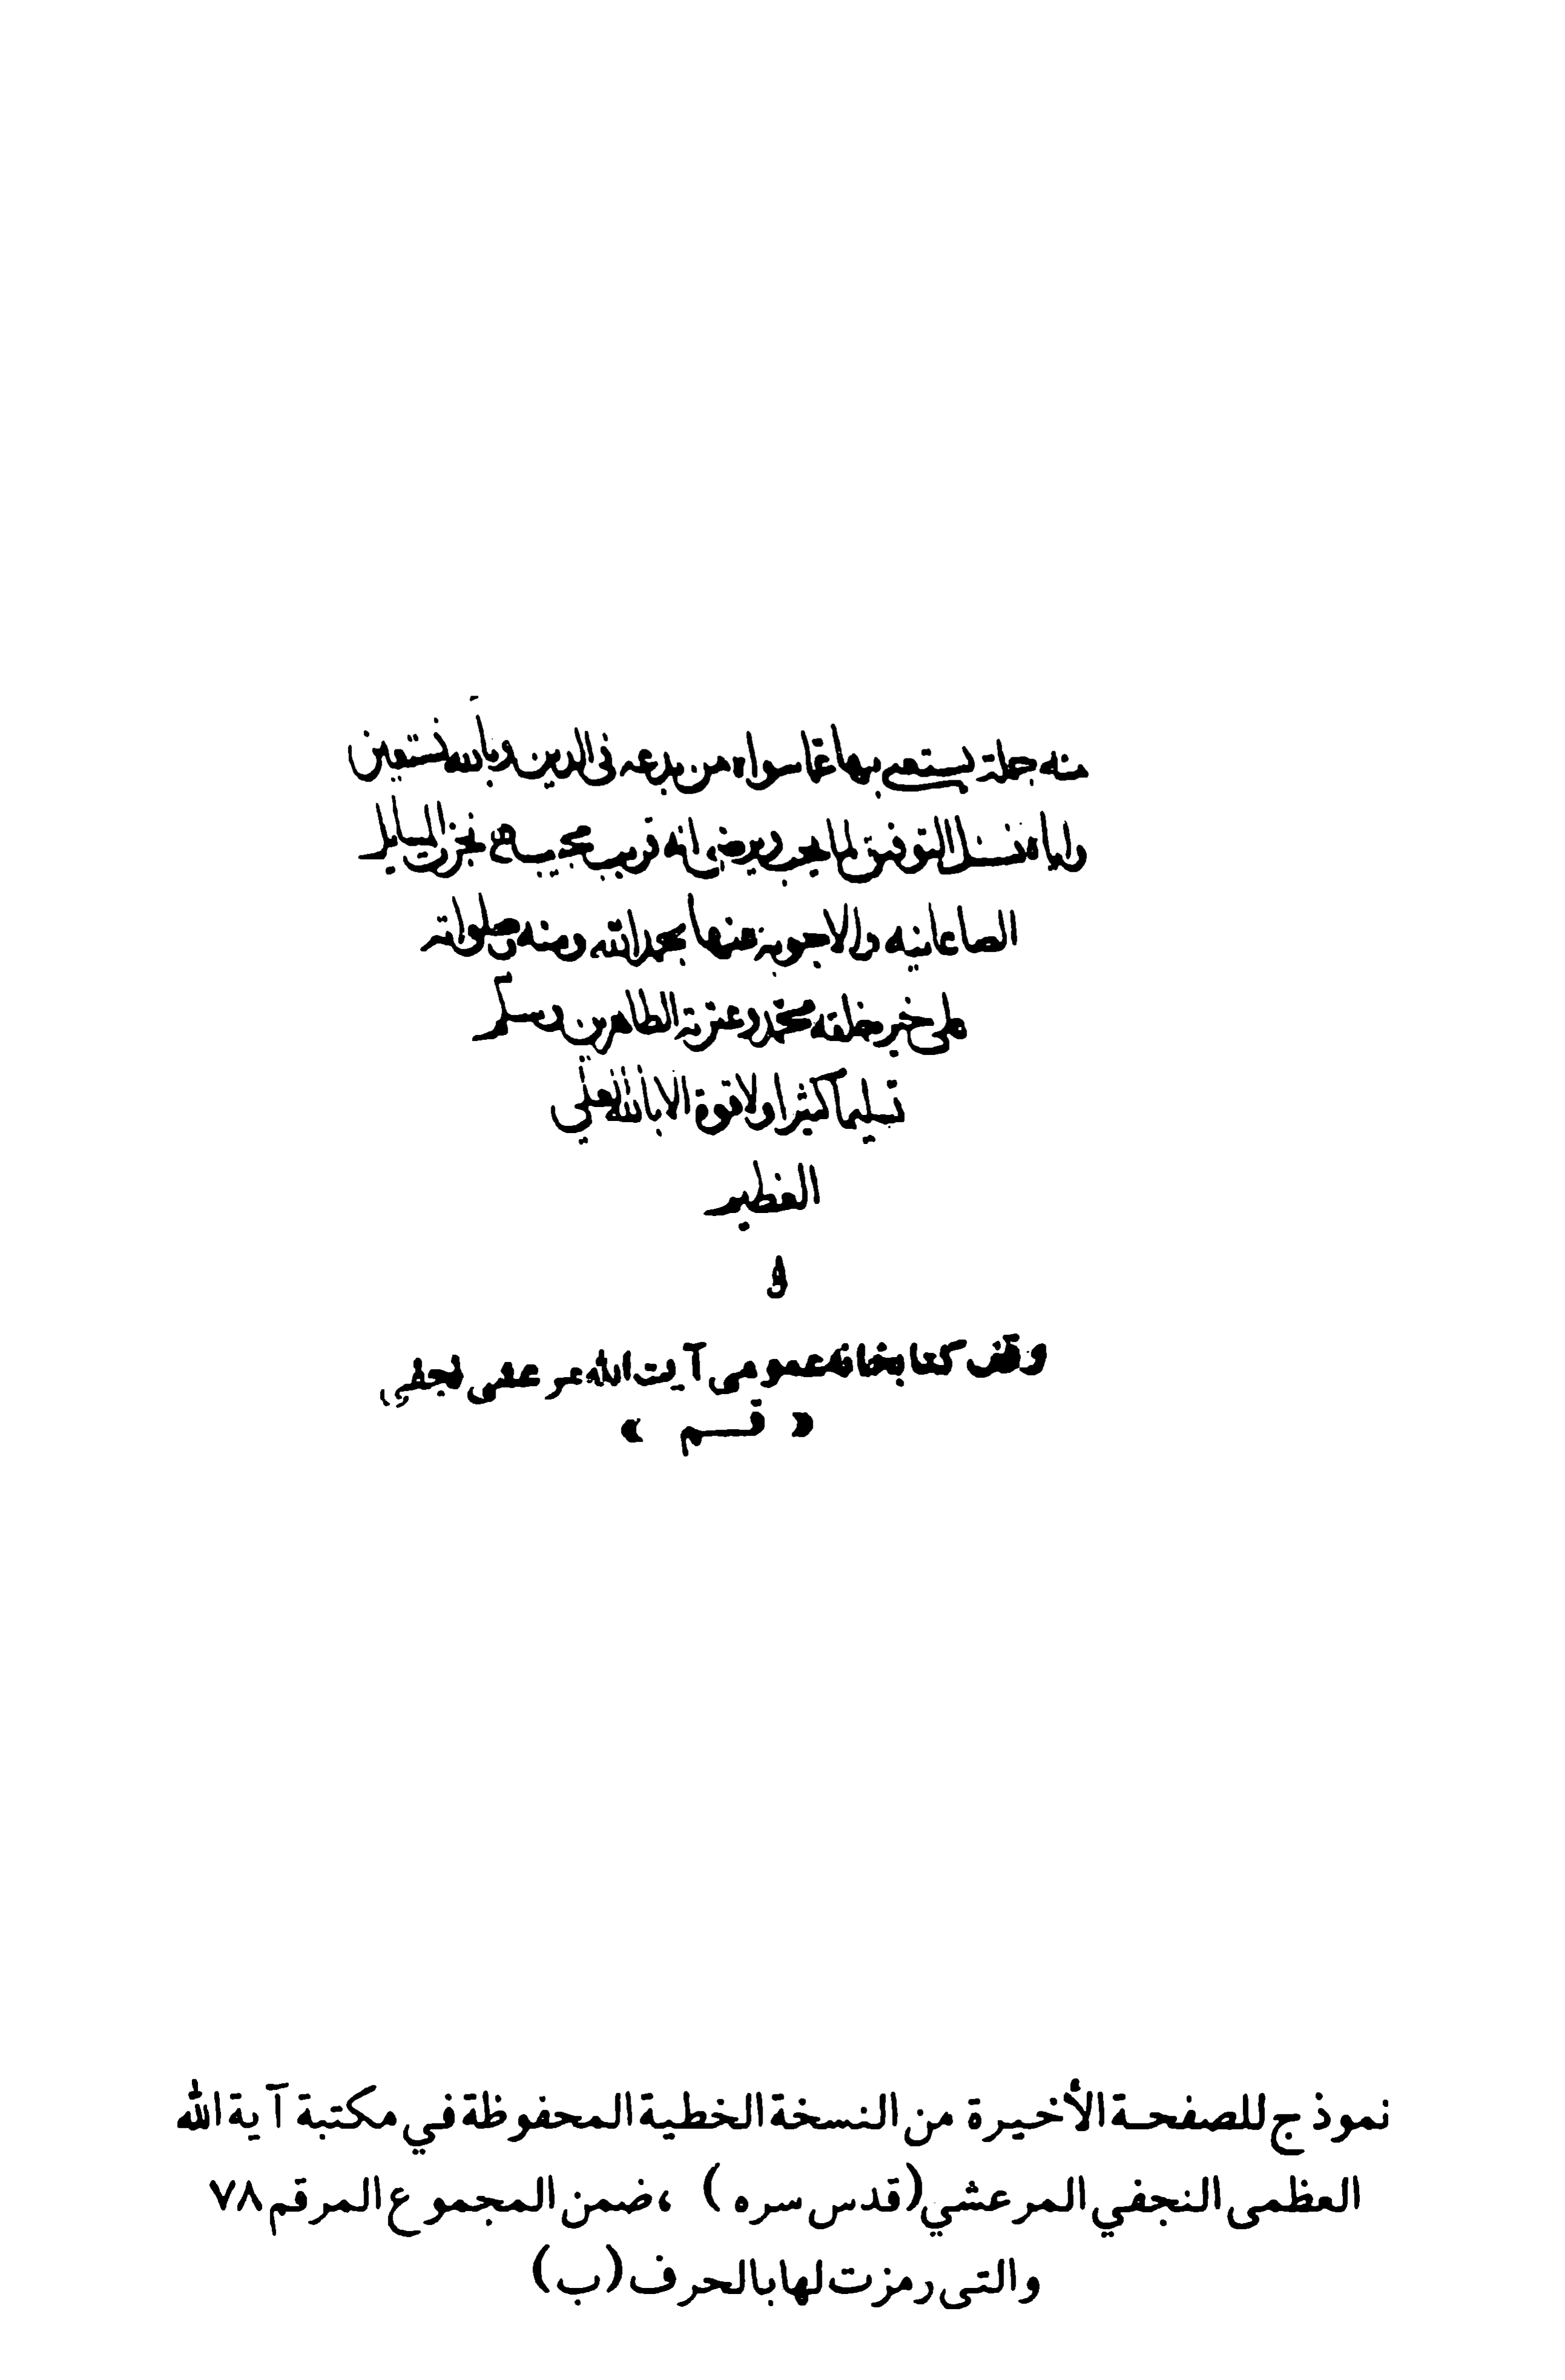 منه جملة يستغنى بها عما سواه من بدعه في الدين وبالله نستعين
واياه نسئل التوفيق لما يحب ويرضى انه قريب مجيب تم نجز المسائل
الصاغانيه والاجوبة عنها بحمد الله ومنه وصلواته
على خير خلقه محمد وعترته الطاهرين وسلم
تسليما كثيرا ولا قوة الا بالله العلي
العظيم
وقف كتابخانه عمومى آيت الله مرعشى نجفي
« قـــم »
نموذج للصفحة الأخيرة من النسخة الخطية المحفوظة في مكتبة آية الله
العظمى النجفي المرعشي (قدس سره) ، ضمن المجموع المرقم ٧٨
والتي رمزت لها بالحرف (ب)